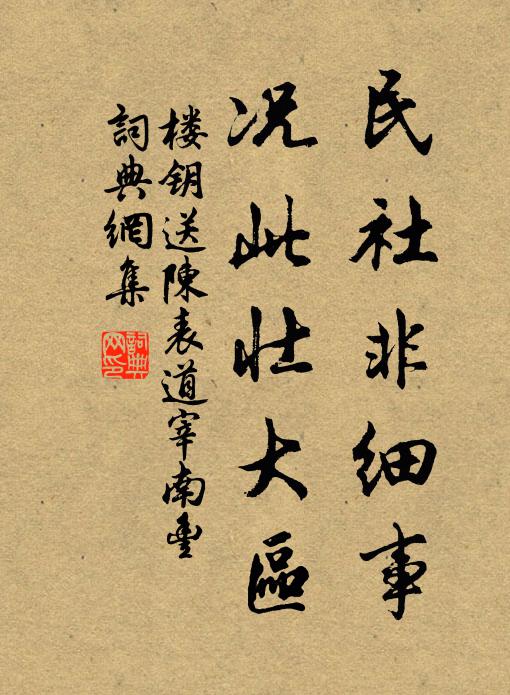 民社非细事
况此壮大區
楼钥送陳表道宰南豐
詞典網集
詞典
网印